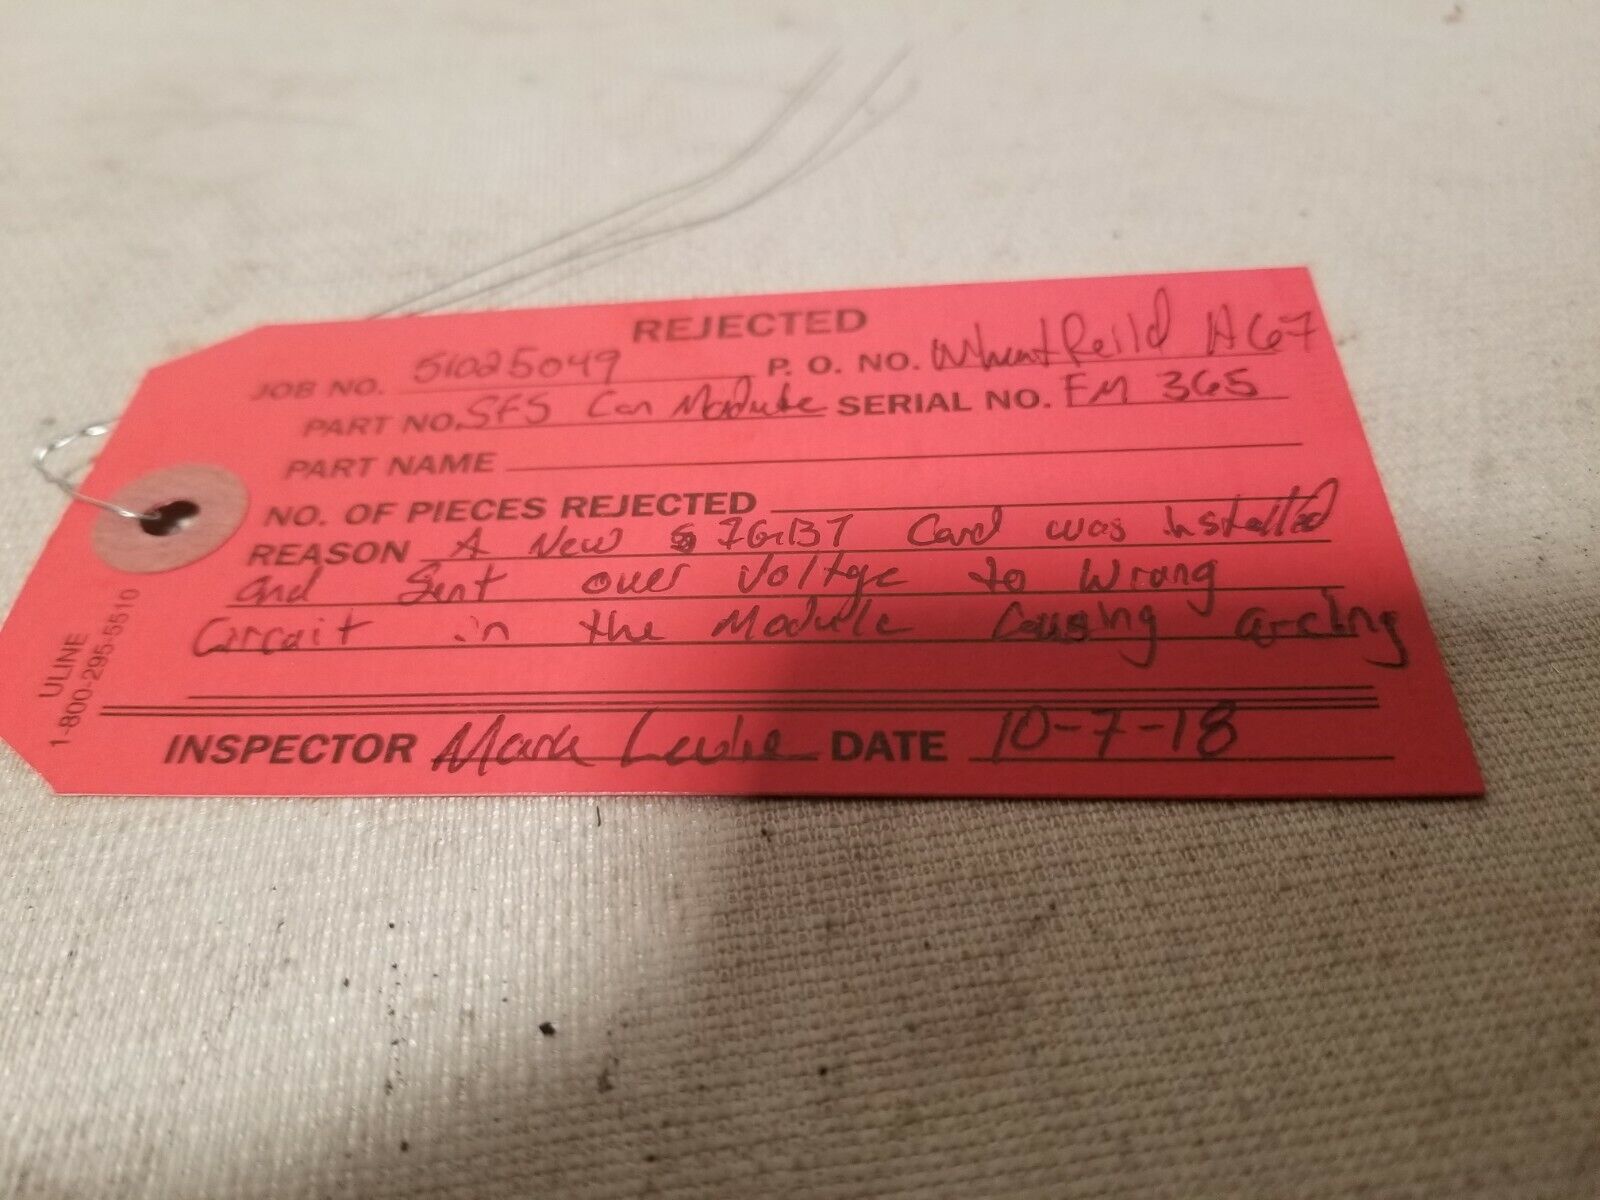 REJECTED
JOB NO. 51025049 P. O. NO. WheatFeild AG7
PART NO. SFS Can Module SERIAL NO. FM 365
PART NAME
NO. OF PIECES REJECTED
REASON A New IGBT Card was installed
and Sent over Voltge to Wrong
Circait in the Module Causing arcing
INSPECTOR Mark DATE 10-7-18
ULINE
1-800-295-5510